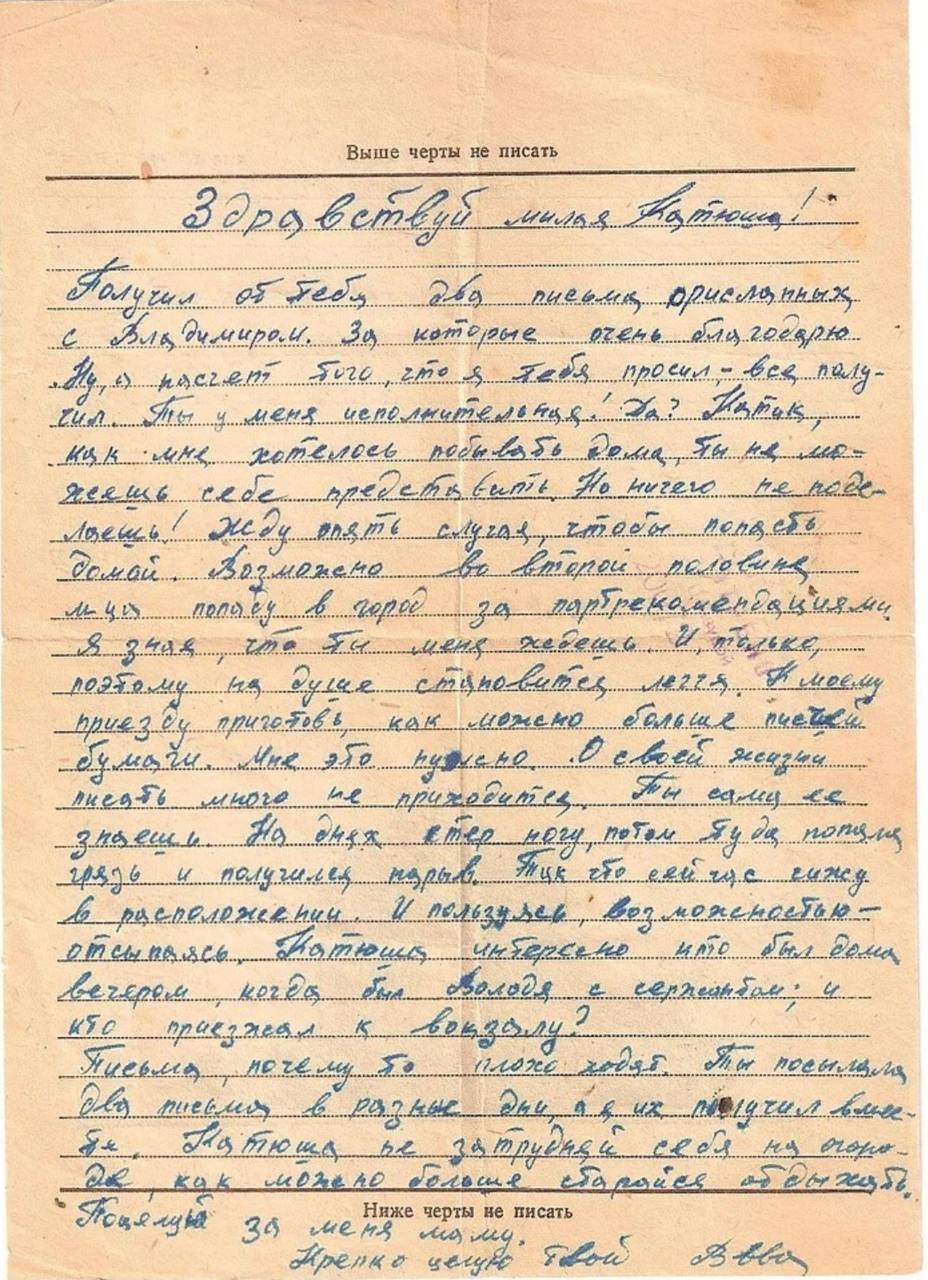 Выше черты не писать
Здравствуй милая Катюша!
Получил от тебя два письма присланных
с Владимиром. За которые очень благодарю
Ну, а насчет того, что я тебя просил, – все полу-
чил. Ты у меня исполнительная! Да? Катик,
как мне хотелось побывать дома, ты не мо-
жешь себе представить. Но ничего не поде-
лаешь! Жду опять случая, чтобы попасть
домой. Возможно во второй половине
м-ца попаду в город за партрекомендациями
Я знаю, что ты меня ждешь. И, только,
поэтому на душе становится легче. К моему
приезду приготовь, как можно больше писчей
бумаги. Мне это нужно. О своей жизни
писать много не приходится. Ты сама ее
знаешь. На днях стер ногу, потом туда попала
грязь и получился нарыв. Так что сейчас сижу
в расположении. И пользуясь, возможностью –
отсыпаясь. Катюша интересно кто был дома
вечером, когда был Володя с сержантом; и
кто приезжал к вокзалу?
Письма, почему то плохо ходят. Ты посылала
два письма в разные дни, а я их получил вмес-
те. Катюша не затрудняй себя на огоро-
де, как можно больше старайся отдыхать.
Ниже черты не писать
Поцелуй за меня маму.
Крепко целую твой Вова